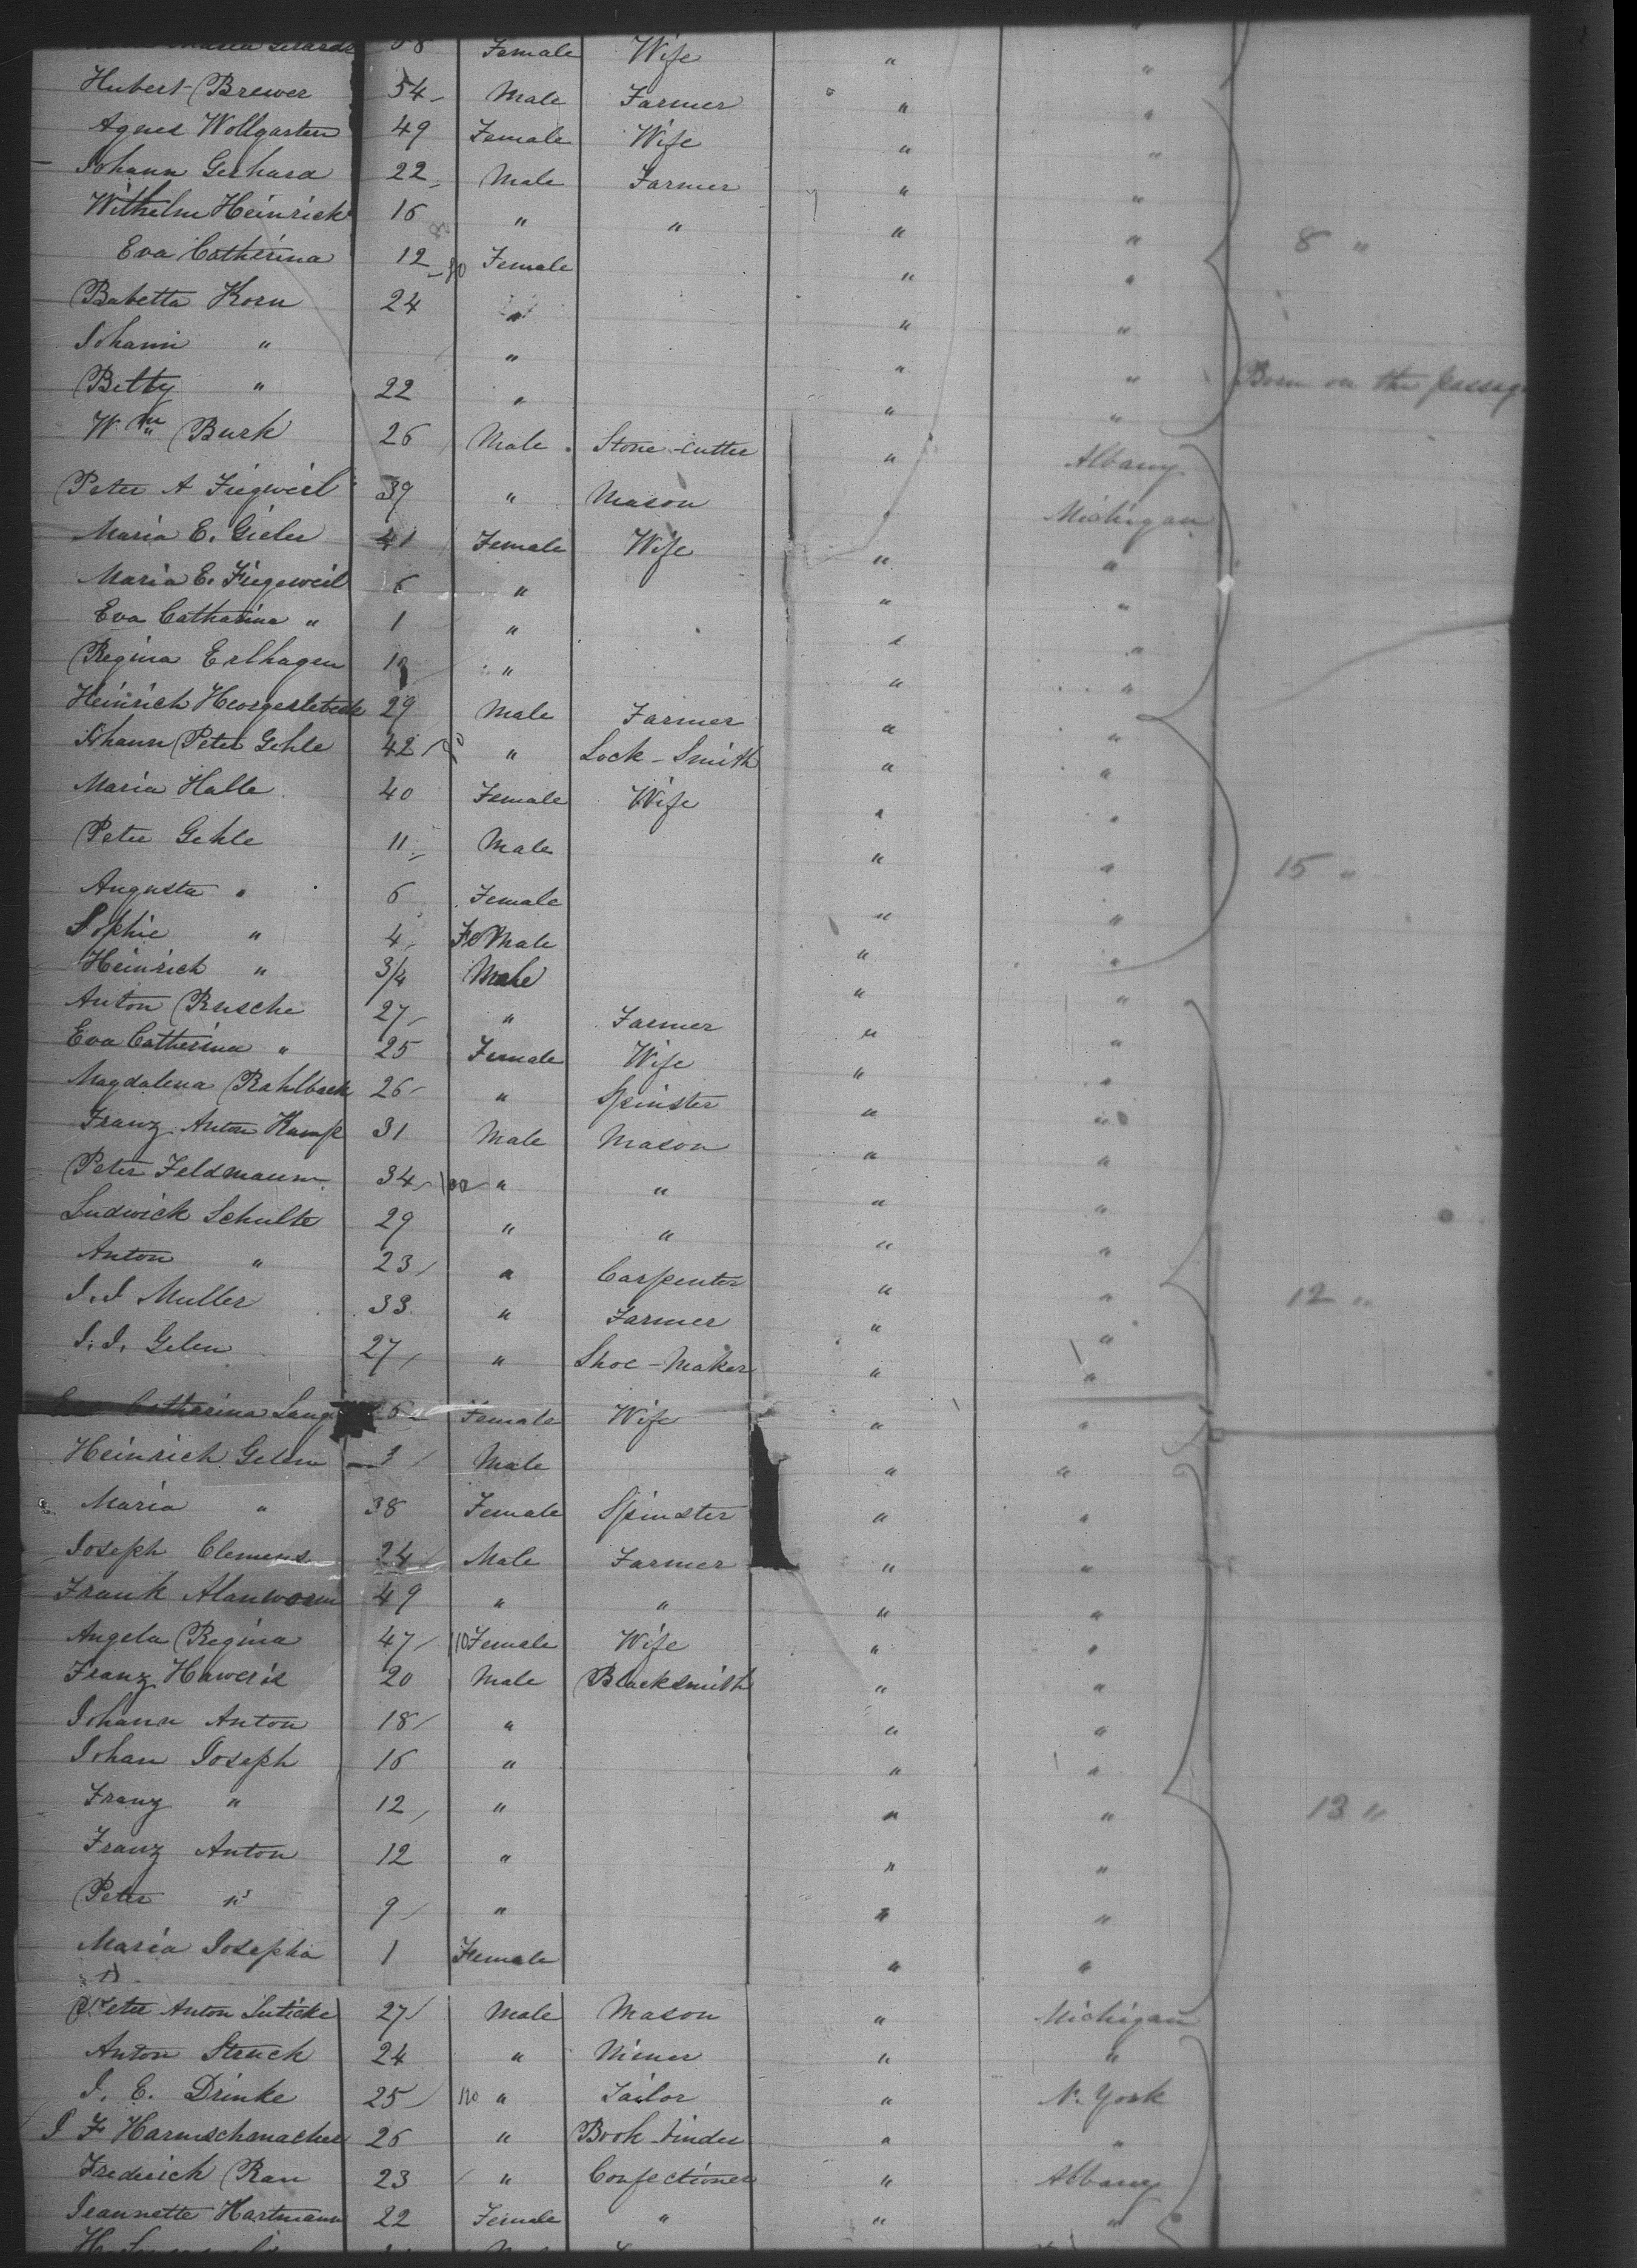 Maria Gerards 58 Female Wife " "
Hubert Brewer 54 Male Farmer " "
Agnes Wollgarten 49 Female Wife " "
Johann Gerhard 22 Male Farmer " "
Wilhelm Heinrich 16 " " " "
Eva Catherina 12 80 Female " " 8 "
Babetta Korn 24 " " "
Johann " " " " Born on the passage
Betty " 22 " " "
Wm Burk 26 Male Stone-cutter " Albany
Peter A 39 " Mason " Michigan
Maria E. Gieler 41 Female Wife " "
Maria E. 6 " " "
Eva Catharina " 1 " " "
Regina Erlhagen " " "
Heinrich 29 Male Farmer " "
Johann Peter Gehle 42 " Lock-Smith " "
Maria Halle 40 Female Wife " "
Peter Gehle 11 Male " "
Augusta " 6 Female " " 15 "
Sophie " 4 FeMale " "
Heinrich " 3/4 Male " "
Anton Rusche 27 " Farmer " "
Eva Catherina " 25 Female Wife " "
Magdalena Rahlback 26 " Spinster " "
Franz Anton Kamp 31 Male Mason " "
Peter Feldmann 34 100 " " " "
Ludwick Schulte 29 " " " "
Anton " 23 " Carpenter " "
J. J Muller 33 " Farmer " " 12 "
J. J. Gelen 27 " Shoe-Maker " "
Catharina Lang Female Wife " "
Heinrich Gelen 3 Male " "
Maria " 38 Female Spinster " "
Joseph Clemens 24 Male Farmer " "
Frank 49 " " " "
Angela Regina 47 110 Female Wife " "
Franz 20 Male Blacksmith " "
Johann Anton 18 " " "
Johan Joseph 16 " " "
Franz " 12 " " " 13 "
Franz Anton 12 " " "
Peter " 9 " " "
Maria Josepha 1 Female " "
Peter Anton Luticke 27 Male Mason " Michigan
Anton Struck 24 " Mimer " "
J. E. Drinke 25 120 " Tailor " N. York
J F 26 " Book-binder " "
Frederick Rau 23 " Confectioner " Albany
Jeannette Hartmann 22 Female " " "